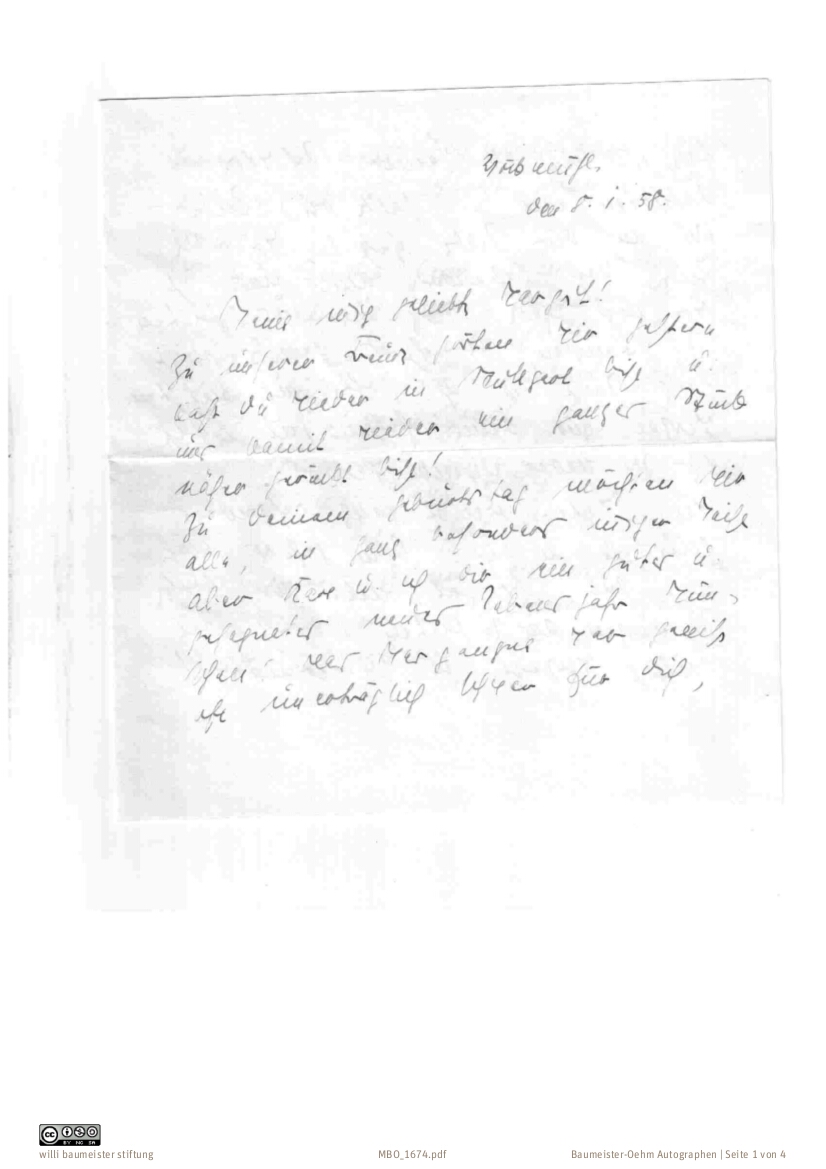 den 8. 1. 58.
Meine innig geliebte Margrit!
Zu unserer Freude hörten wir gestern
daß du wieder in Stuttgart bist u.
uns damit wieder ein ganzes Stück
näher gerückt bist!
Zu deinem Geburtstag möchten wir
alle, in ganz besonders inniger Weise
aber Karl u. ich dir ein gutes u.
gesegnetes neues Lebensjahr wün-
schen! das Vergangne war gewiß
oft unerträglich schwer für dich,
CC BY NC SA
willi baumeister stiftung
MBO_1674.pdf
Baumeister-Oehm Autographen | Seite 1 von 4